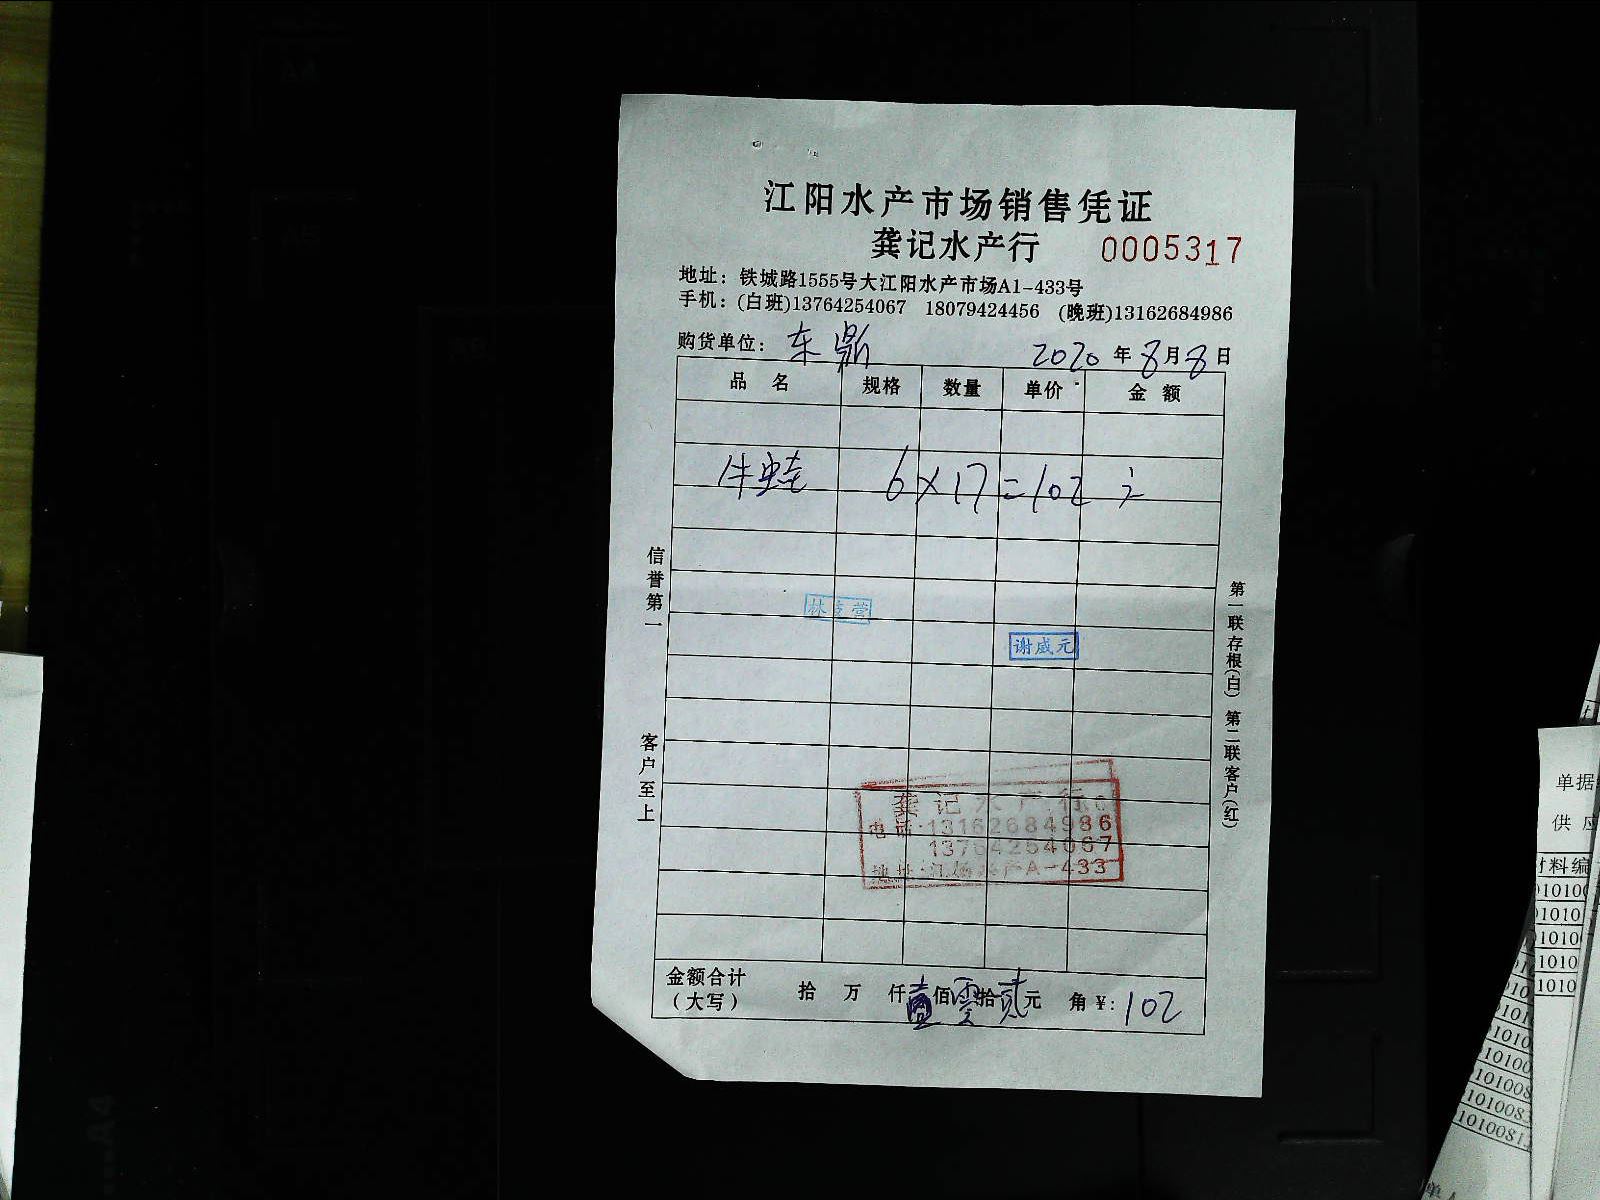 江阳水产市场销售凭证
龚记水产行 0005317
地址：铁城路1555号大江阳水产市场A1-433号
手机：(白班)13764254067 18079424456 (晚班)13162684986
购货单位：东鼎 2020年8月8日
品名 规格 数量 单价 金额
牛蛙 6×17=102元
信誉第一
客户至上
林 营
谢成元
龚记水产行
电话:13162684986
13764254067
地址:江杨水产A-433
第一联存根(白) 第二联客户(红)
金额合计
(大写) 拾 万 仟壹佰零拾贰元 角 ¥:102
单据
供应
材料编